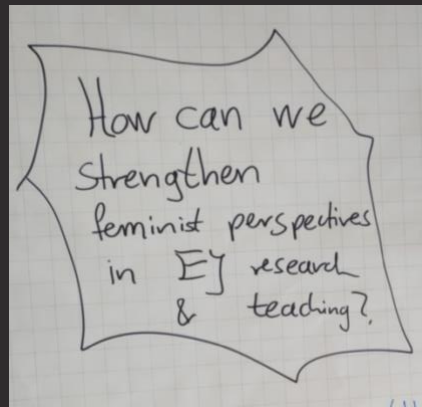 How can we
strengthen
feminist perspectives
in EJ research
& teaching?